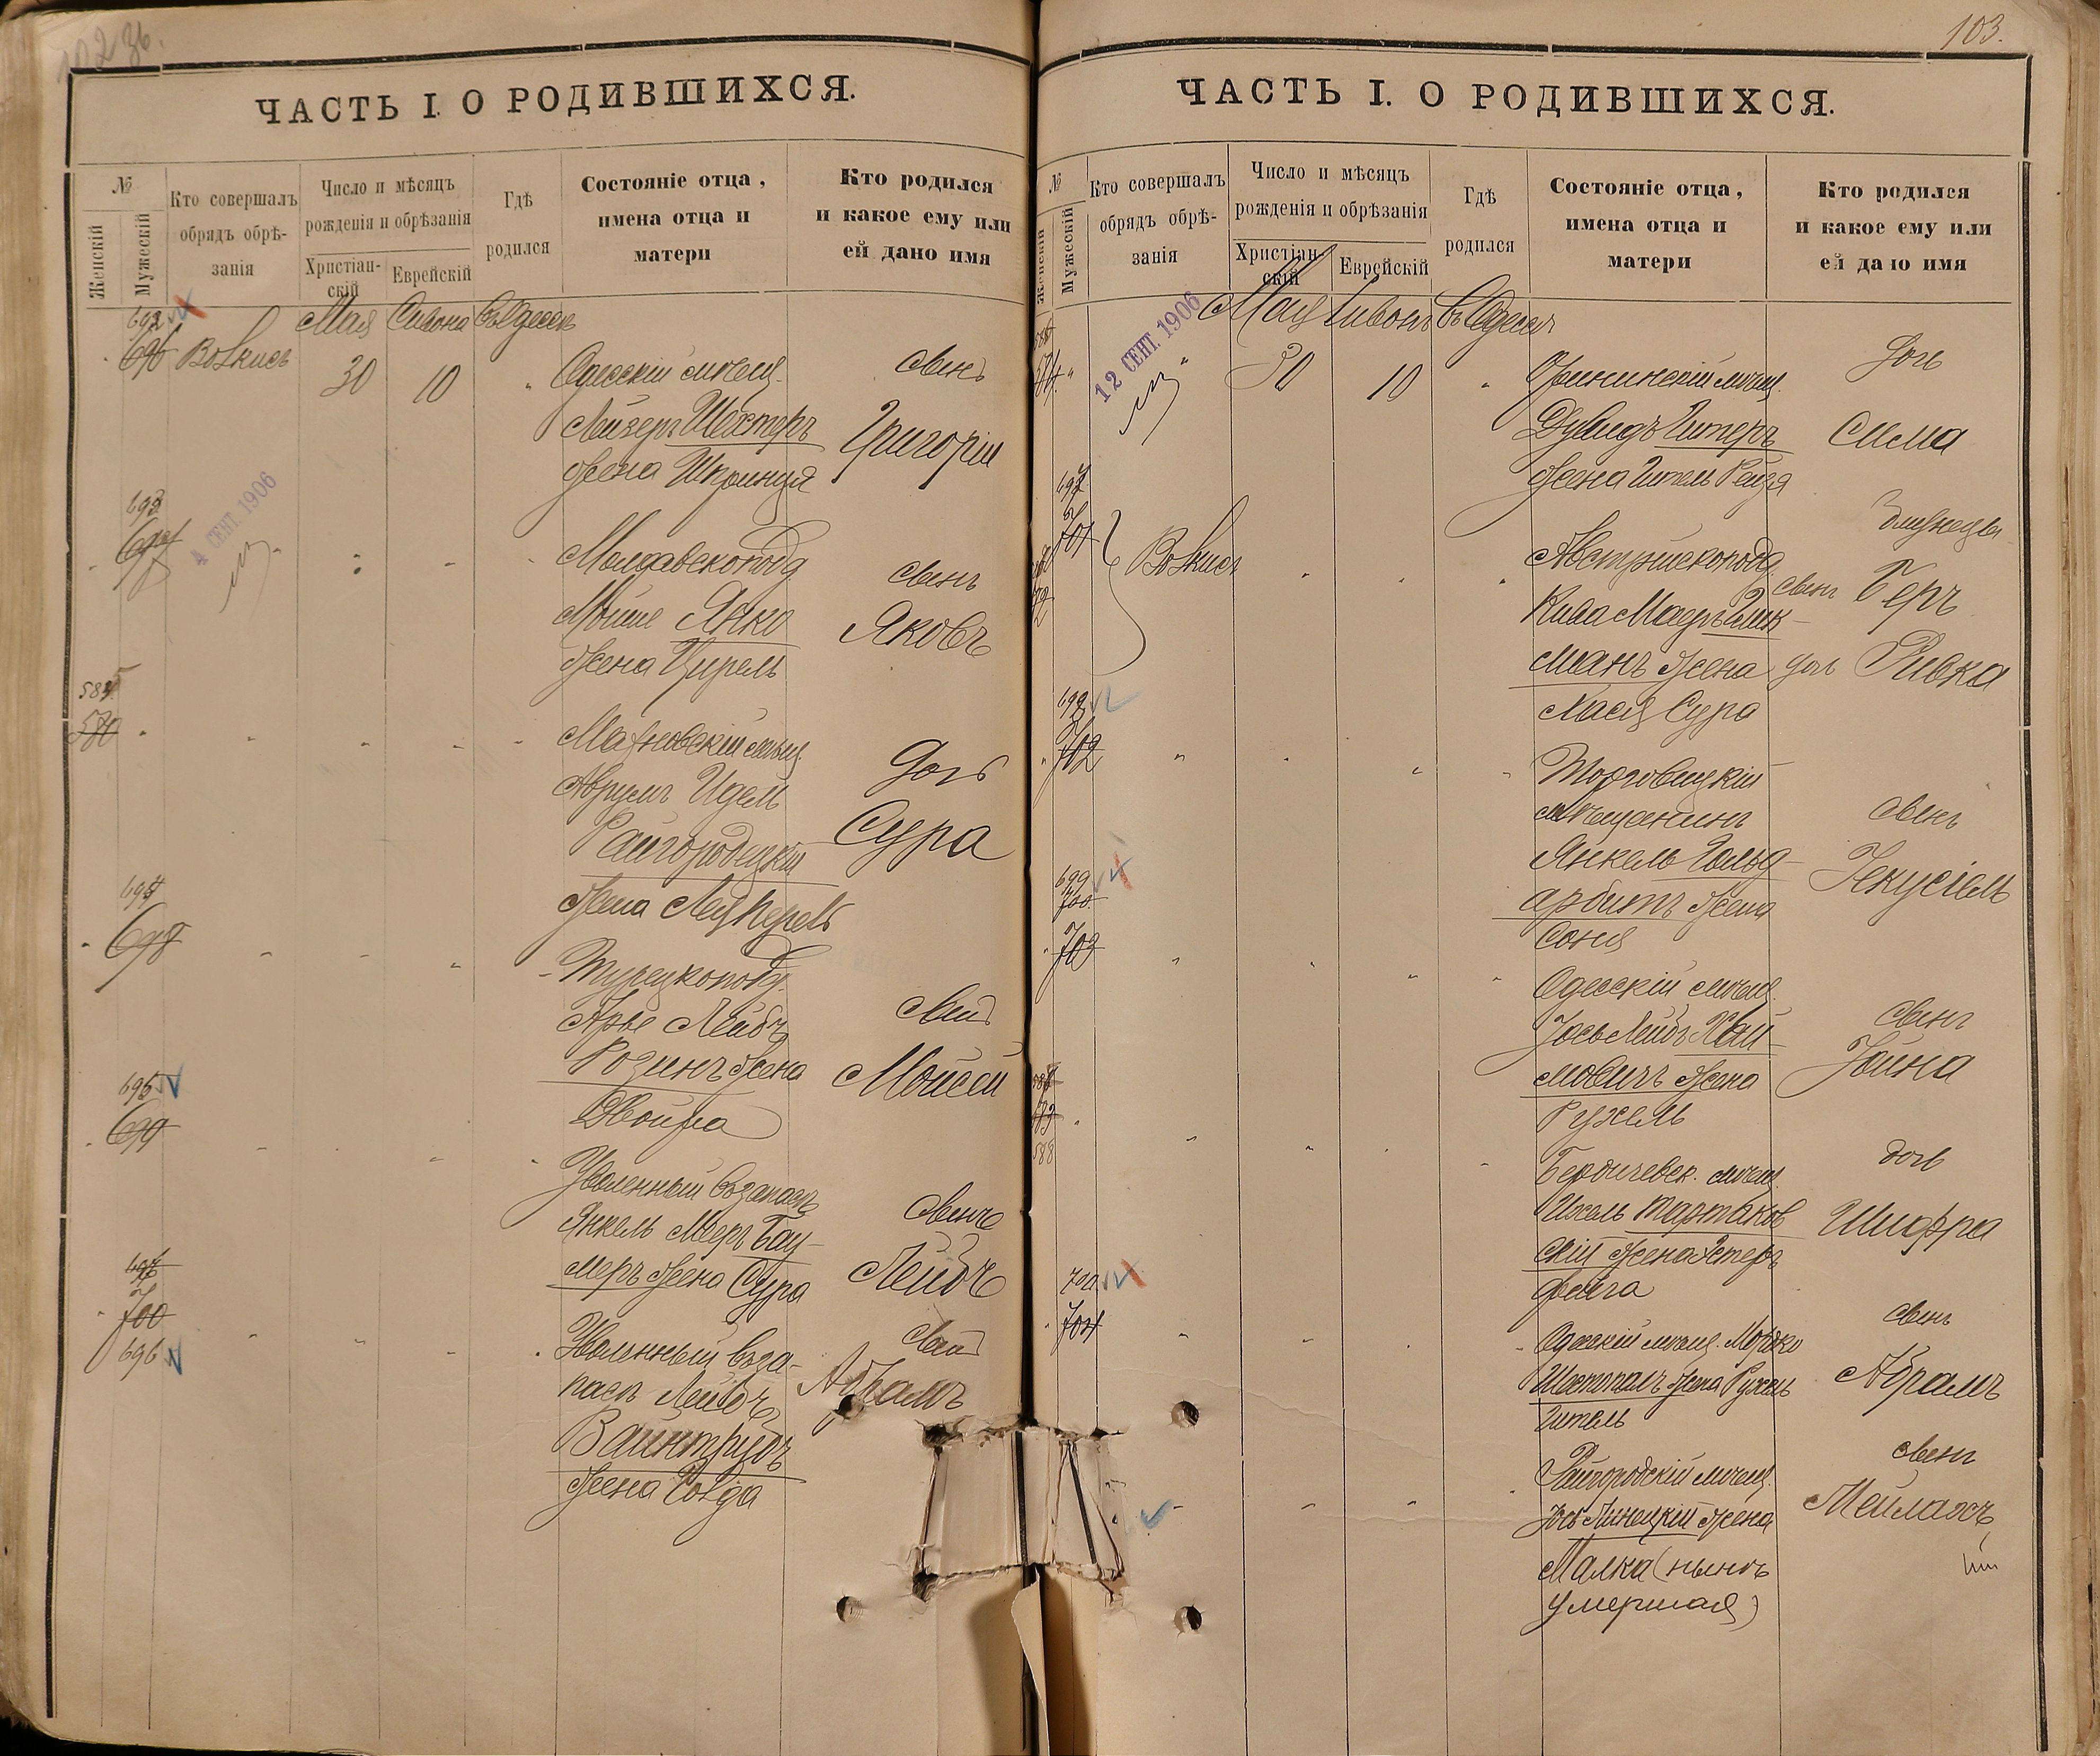 103.
ЧАСТЬ I. О РОДИВШИХСЯ.
№
Женскій
Мужескій
Кто совершалъ
обрядъ обрѣ-
занія
Число и мѣсяцъ
рожденія и обрѣзанія
Христіан-
скій
Еврейскій
Гдѣ
родился
Состояніе отца,
имена отца и
матери
Кто родился
и какое ему или
ей дано имя
Мая Сивона въ Одессѣ
692
696
30 10
Одесскій мѣщ.
Лейзеръ Шехтеръ
жена Шпринця
сынъ
Григорій
4 СЕНТ. 1906
693
Молдавскопод.
Мойше Янко
жена Цирель
сынъ
Яковъ
580
Махновскій мѣщ.
Аврумъ Идель
Райгородецкій
жена Лея Перель
дочь
Сура
698
Турецкопод.
Арье Лейбъ
Розинъ жена
Двойра
сынъ
Мойсей
695
699
Уволенный въ запасъ
Янкель Мееръ Бау-
меръ жена Сура
сынъ
Лейбъ
700
696
Уволенный въ за-
пасъ Лейбъ
Вайнтрубъ
жена Говда
сынъ
Абрамъ
ЧАСТЬ I. О РОДИВШИХСЯ.
№
Женскій
Мужескій
Кто совершалъ
обрядъ обрѣ-
занія
Число и мѣсяцъ
рожденія и обрѣзанія
Христіан-
скій
Еврейскій
Гдѣ
родился
Состояніе отца,
имена отца и
матери
Кто родился
и какое ему или
ей дано имя
Мая Сивонъ въ Одессѣ
12 СЕНТ. 1906
30 10
мѣщ.
Дувидъ Гитеръ
жена Гитель Рейзя
дочь
Сима
701
Австрійскопод.
жена
Хася Сура
Близнецы
сынъ Беръ
дочь Ривка
702
Торговицкій
мѣщанинъ
Янкель Гольд-
арбитъ жена
Соня
сынъ
Іекусіель
699
700
703
Одесскій мѣщ.
Іось Лейбъ Хай-
мовичъ жена
Рухель
сынъ
Іойна
588
Бердичевск. мѣщ.
Ихель Тартаков
скій жена Эстеръ
Фейга
дочь
Шифра
700
704
Одесскій мѣщ. Мордко
Шестопалъ жена Рухель
Гитель
сынъ
Абрамъ
Райгородскій мѣщ.
Іось Линецкій жена
Малка (нынѣ
умершая)
сынъ
Мейлахъ